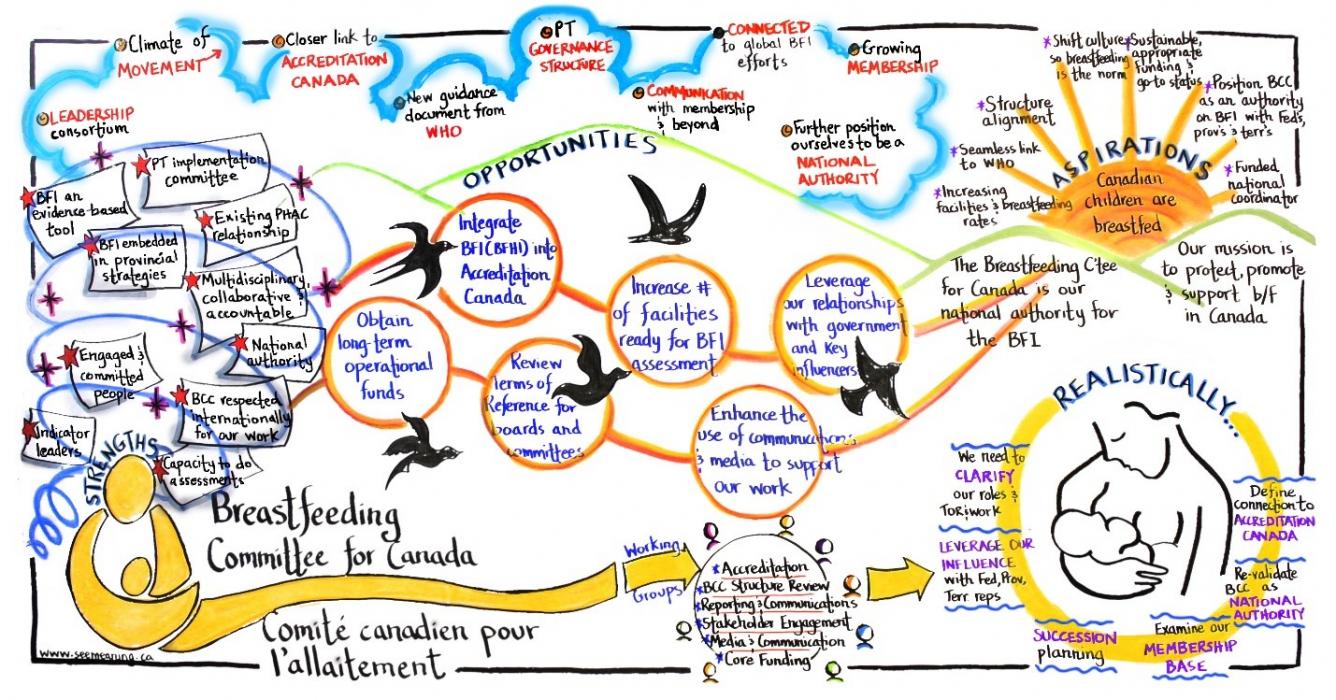 Climate of
MOVEMENT
Closer link to
ACCREDITATION
CANADA
New guidance
document from
WHO
PT
GOVERNANCE
STRUCTURE
COMMUNICATION
with membership
& beyond
CONNECTED
to global BFI
efforts
Growing
MEMBERSHIP
Further position
ourselves to be a
NATIONAL
AUTHORITY
LEADERSHIP
consortium
OPPORTUNITIES
BFI an
evidence-based
tool
PT implementation
committee
Existing PHAC
relationship
BFI embedded
in provincial
strategies
Multidisciplinary,
collaborative &
accountable
National
authority
Engaged &
committed
people
BCC respected
internationally
for our work
Indicator
leaders
Capacity to do
assessments
STRENGTHS
Integrate
BFI (BFHI) into
Accreditation
Canada
Increase #
of facilities
ready for BFI
assessment
Leverage
our relationships
with government
and key
influencers
Obtain
long-term
operational
funds
Review
Terms of
Reference for
boards and
committees
Enhance the
use of communications
& media to support
our work
*Increasing
facilities & breastfeeding
rates
*Seamless link
to WHO
*Structure
alignment
*Shift culture
so breastfeeding
is the norm
*Sustainable,
appropriate
funding &
go-to status
*Position BCC
as an authority
on BFI with Feds,
prov's & terr's
*Funded
national
coordinator
ASPIRATIONS
Canadian
children are
breastfed
The Breastfeeding C'tee
for Canada is our
national authority for
the BFI
Our mission is
to protect, promote
& support b/f
in Canada
Breastfeeding
Committee for Canada
Comité canadien pour
l'allaitement
Working
Groups
*Accreditation
*BCC Structure Review
*Reporting & Communications
*Stakeholder Engagement
*Media & Communication
*Core Funding
REALISTICALLY...
We need to
CLARIFY
our roles &
ToR & work
LEVERAGE OUR
INFLUENCE
with Fed, Prov,
Terr reps
SUCCESSION
planning
Examine our
MEMBERSHIP
BASE
Re-validate
BCC as
NATIONAL
AUTHORITY
Define
connection to
ACCREDITATION
CANADA